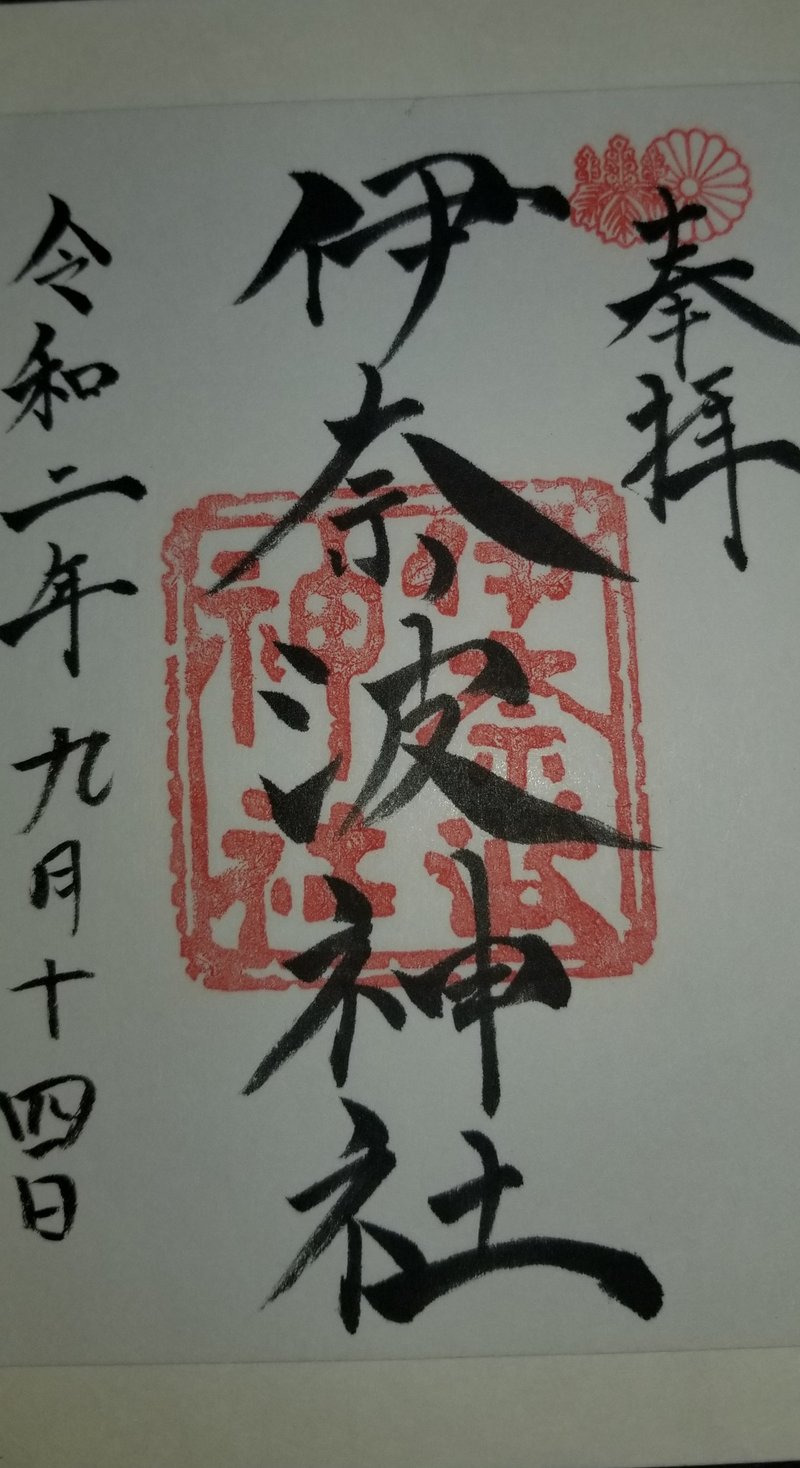 奉拝
伊奈波神社
伊奈波神社
令和二年九月十四日